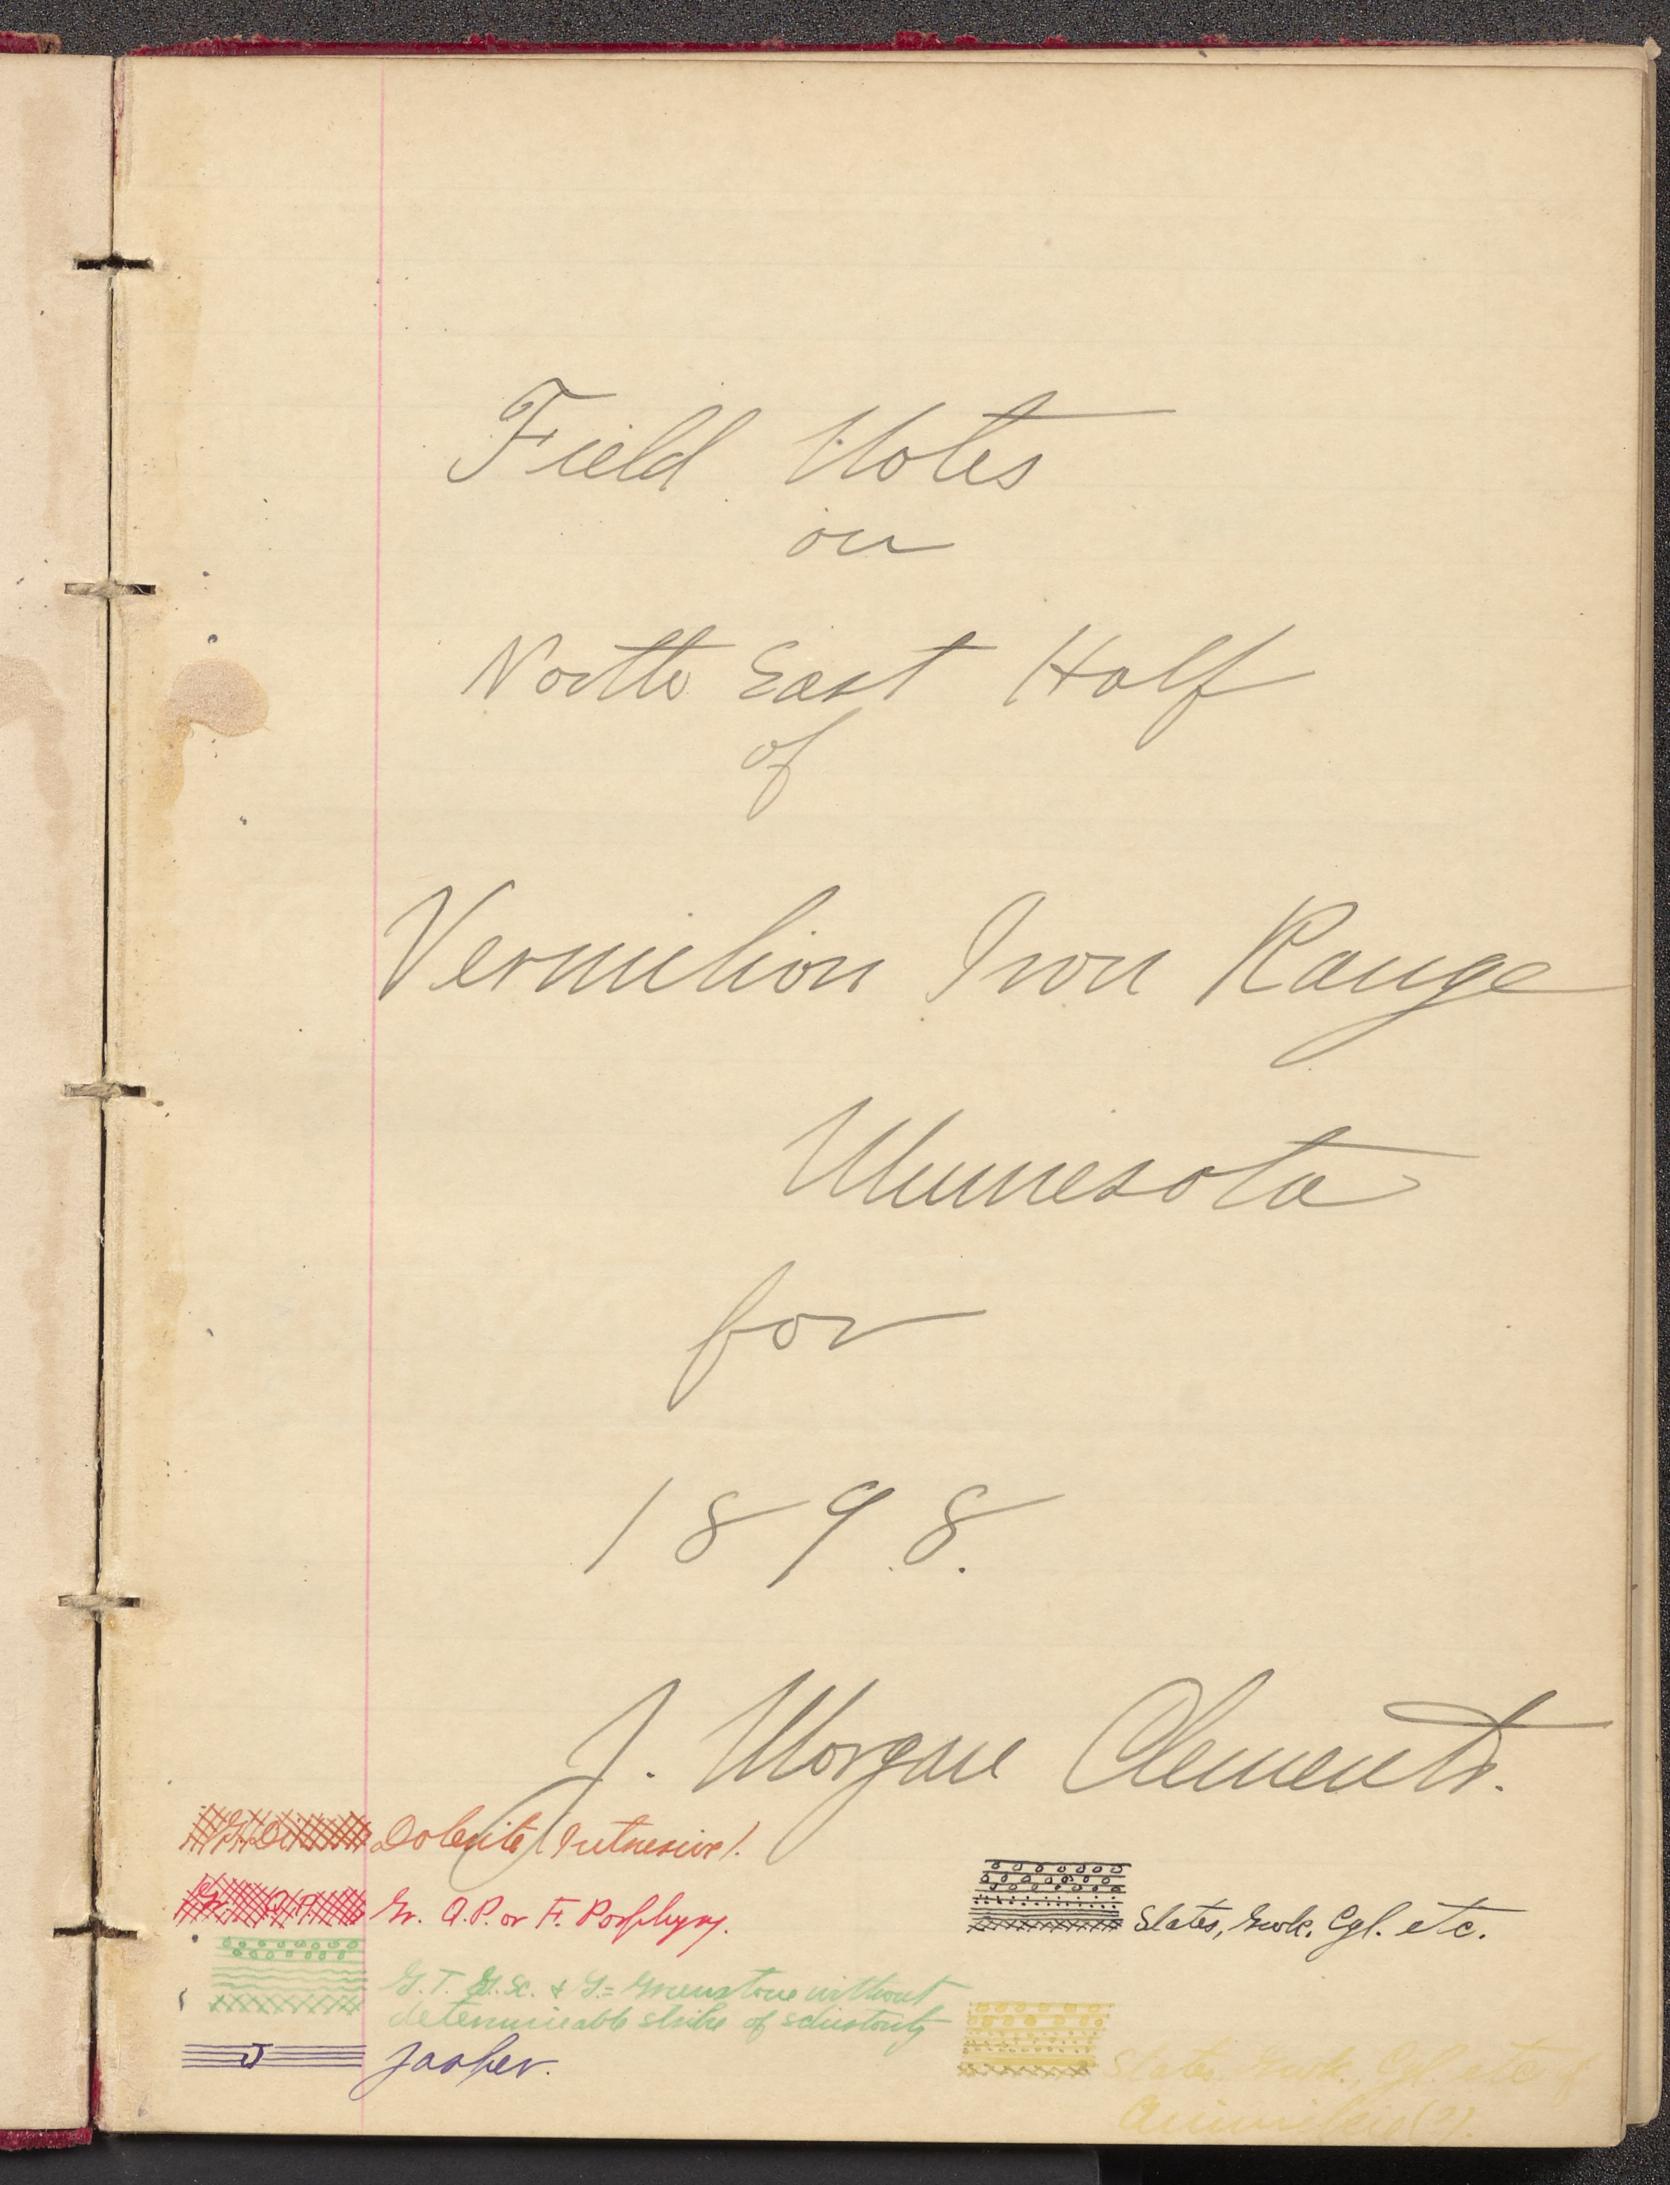 Field Notes
on
North East Half
of
Vermilion Iron Range
Minnesota
for
1898.
J. Morgan Clements.
Dolerite (Intrusive).
Gr. Q.P. or F. Porphyry.
G.T. G.Sc. & G. = Greenstone without
determineable strike of schistosity
J Jasper.
Slates, Gwk. Cgl. etc.
Slates Gwk., Cgl. etc of
Animikie (?).